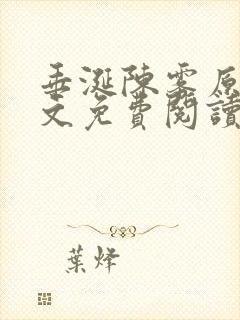 垂涎陳霧原
文免費閱讀
葉烽